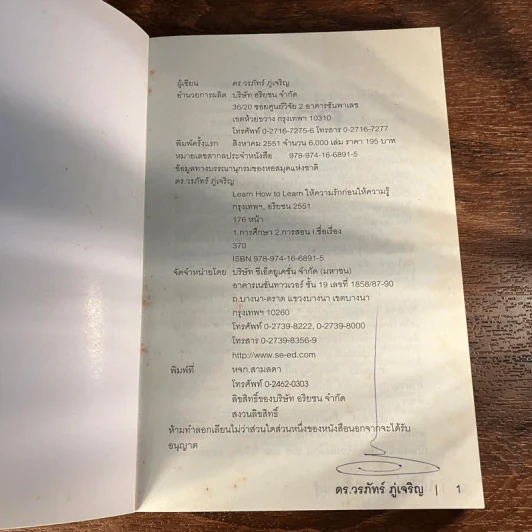 ผู้เขียน ดร.วรภัทร์ ภู่เจริญ
อำนวยการผลิต บริษัท อริยชน จำกัด
36/20 ซอยศูนย์วิจัย 2 อาคารซันพาเลซ
เขตห้วยขวาง กรุงเทพฯ 10310
โทรศัพท์ 0-2716-7275-6 โทรสาร 0-2716-7277
พิมพ์ครั้งแรก สิงหาคม 2551 จำนวน 6,000 เล่ม ราคา 195 บาท
หมายเลขสากลประจำหนังสือ 978-974-16-6891-5
ข้อมูลทางบรรณานุกรมของหอสมุดแห่งชาติ
ดร.วรภัทร์ ภู่เจริญ
Learn How to Learn ให้ความรักก่อนให้ความรู้
กรุงเทพฯ, อริยชน 2551
176 หน้า
1.การศึกษา 2.การสอน I.ชื่อเรื่อง
370
ISBN 978-974-16-6891-5
จัดจำหน่ายโดย บริษัท ซีเอ็ดยูเคชั่น จำกัด (มหาชน)
อาคารเนชั่นทาวเวอร์ ชั้น 19 เลขที่ 1858/87-90
ถ.บางนา-ตราด แขวงบางนา เขตบางนา
กรุงเทพฯ 10260
โทรศัพท์ 0-2739-8222, 0-2739-8000
โทรสาร 0-2739-8356-9
http://www.se-ed.com
พิมพ์ที่ หจก.สามลดา
โทรศัพท์ 0-2462-0303
ลิขสิทธิ์ของบริษัท อริยชน จำกัด
สงวนลิขสิทธิ์
ห้ามทำลอกเลียนไม่ว่าส่วนใดส่วนหนึ่งของหนังสือนอกจากจะได้รับ
อนุญาต
ดร.วรภัทร์ ภู่เจริญ | 1